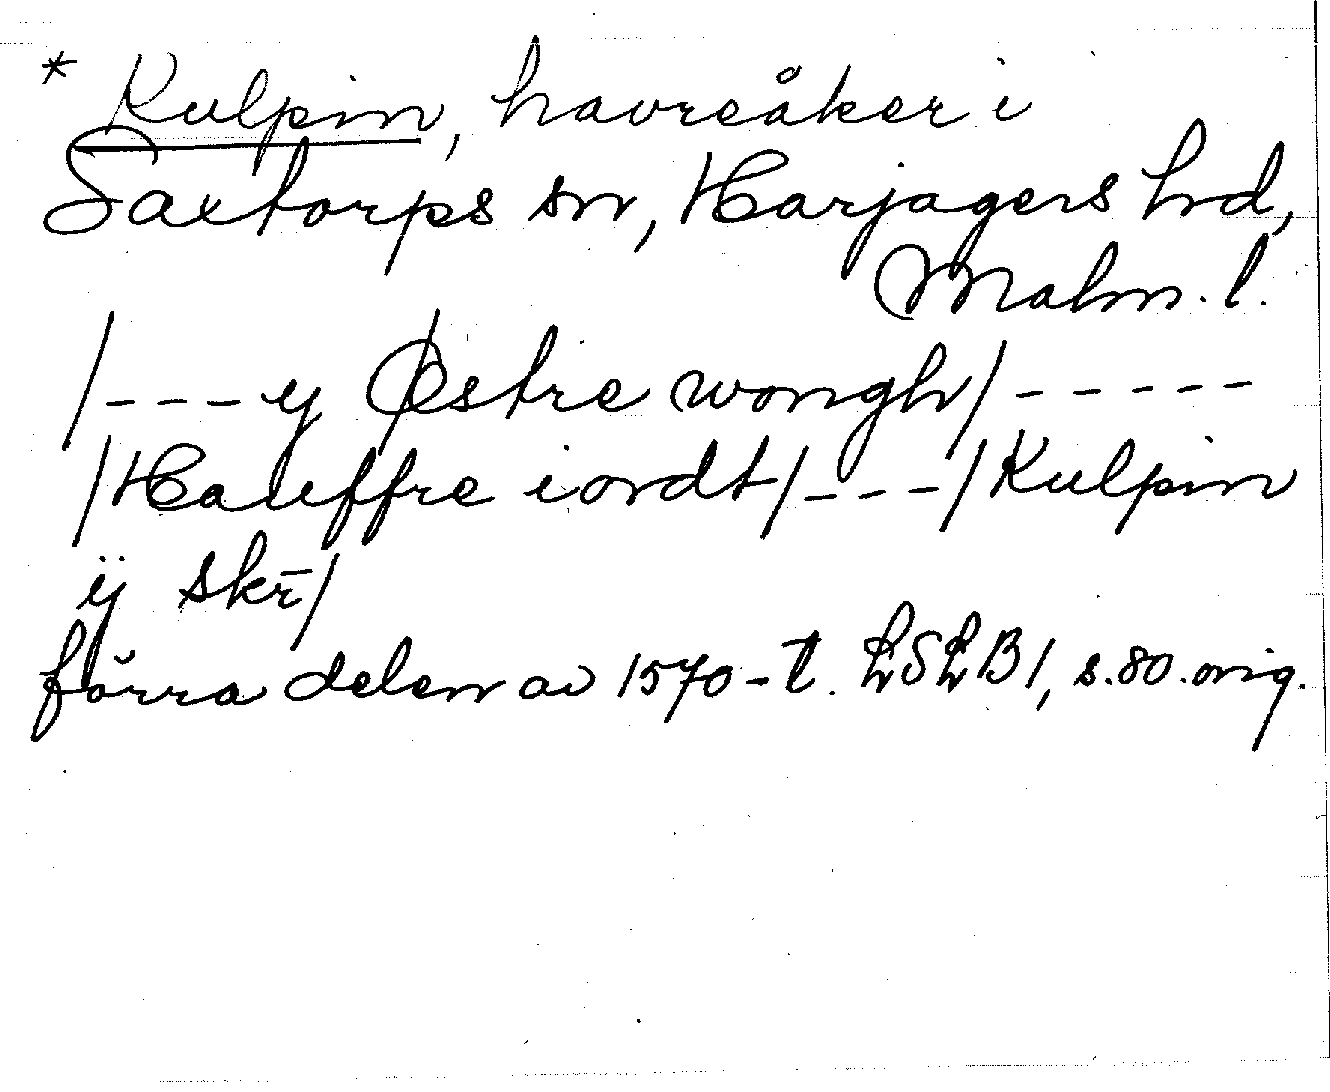 * Kulpin, havreåker i
Saxtorps sn, Harjagers hd,
Malm. l.
/---y Østre wongh/-----
/Haluffre iordt/---/Kulpin
ÿ skr̄/
förra delen av 1570-t. LSLB1, s. 80. orig.